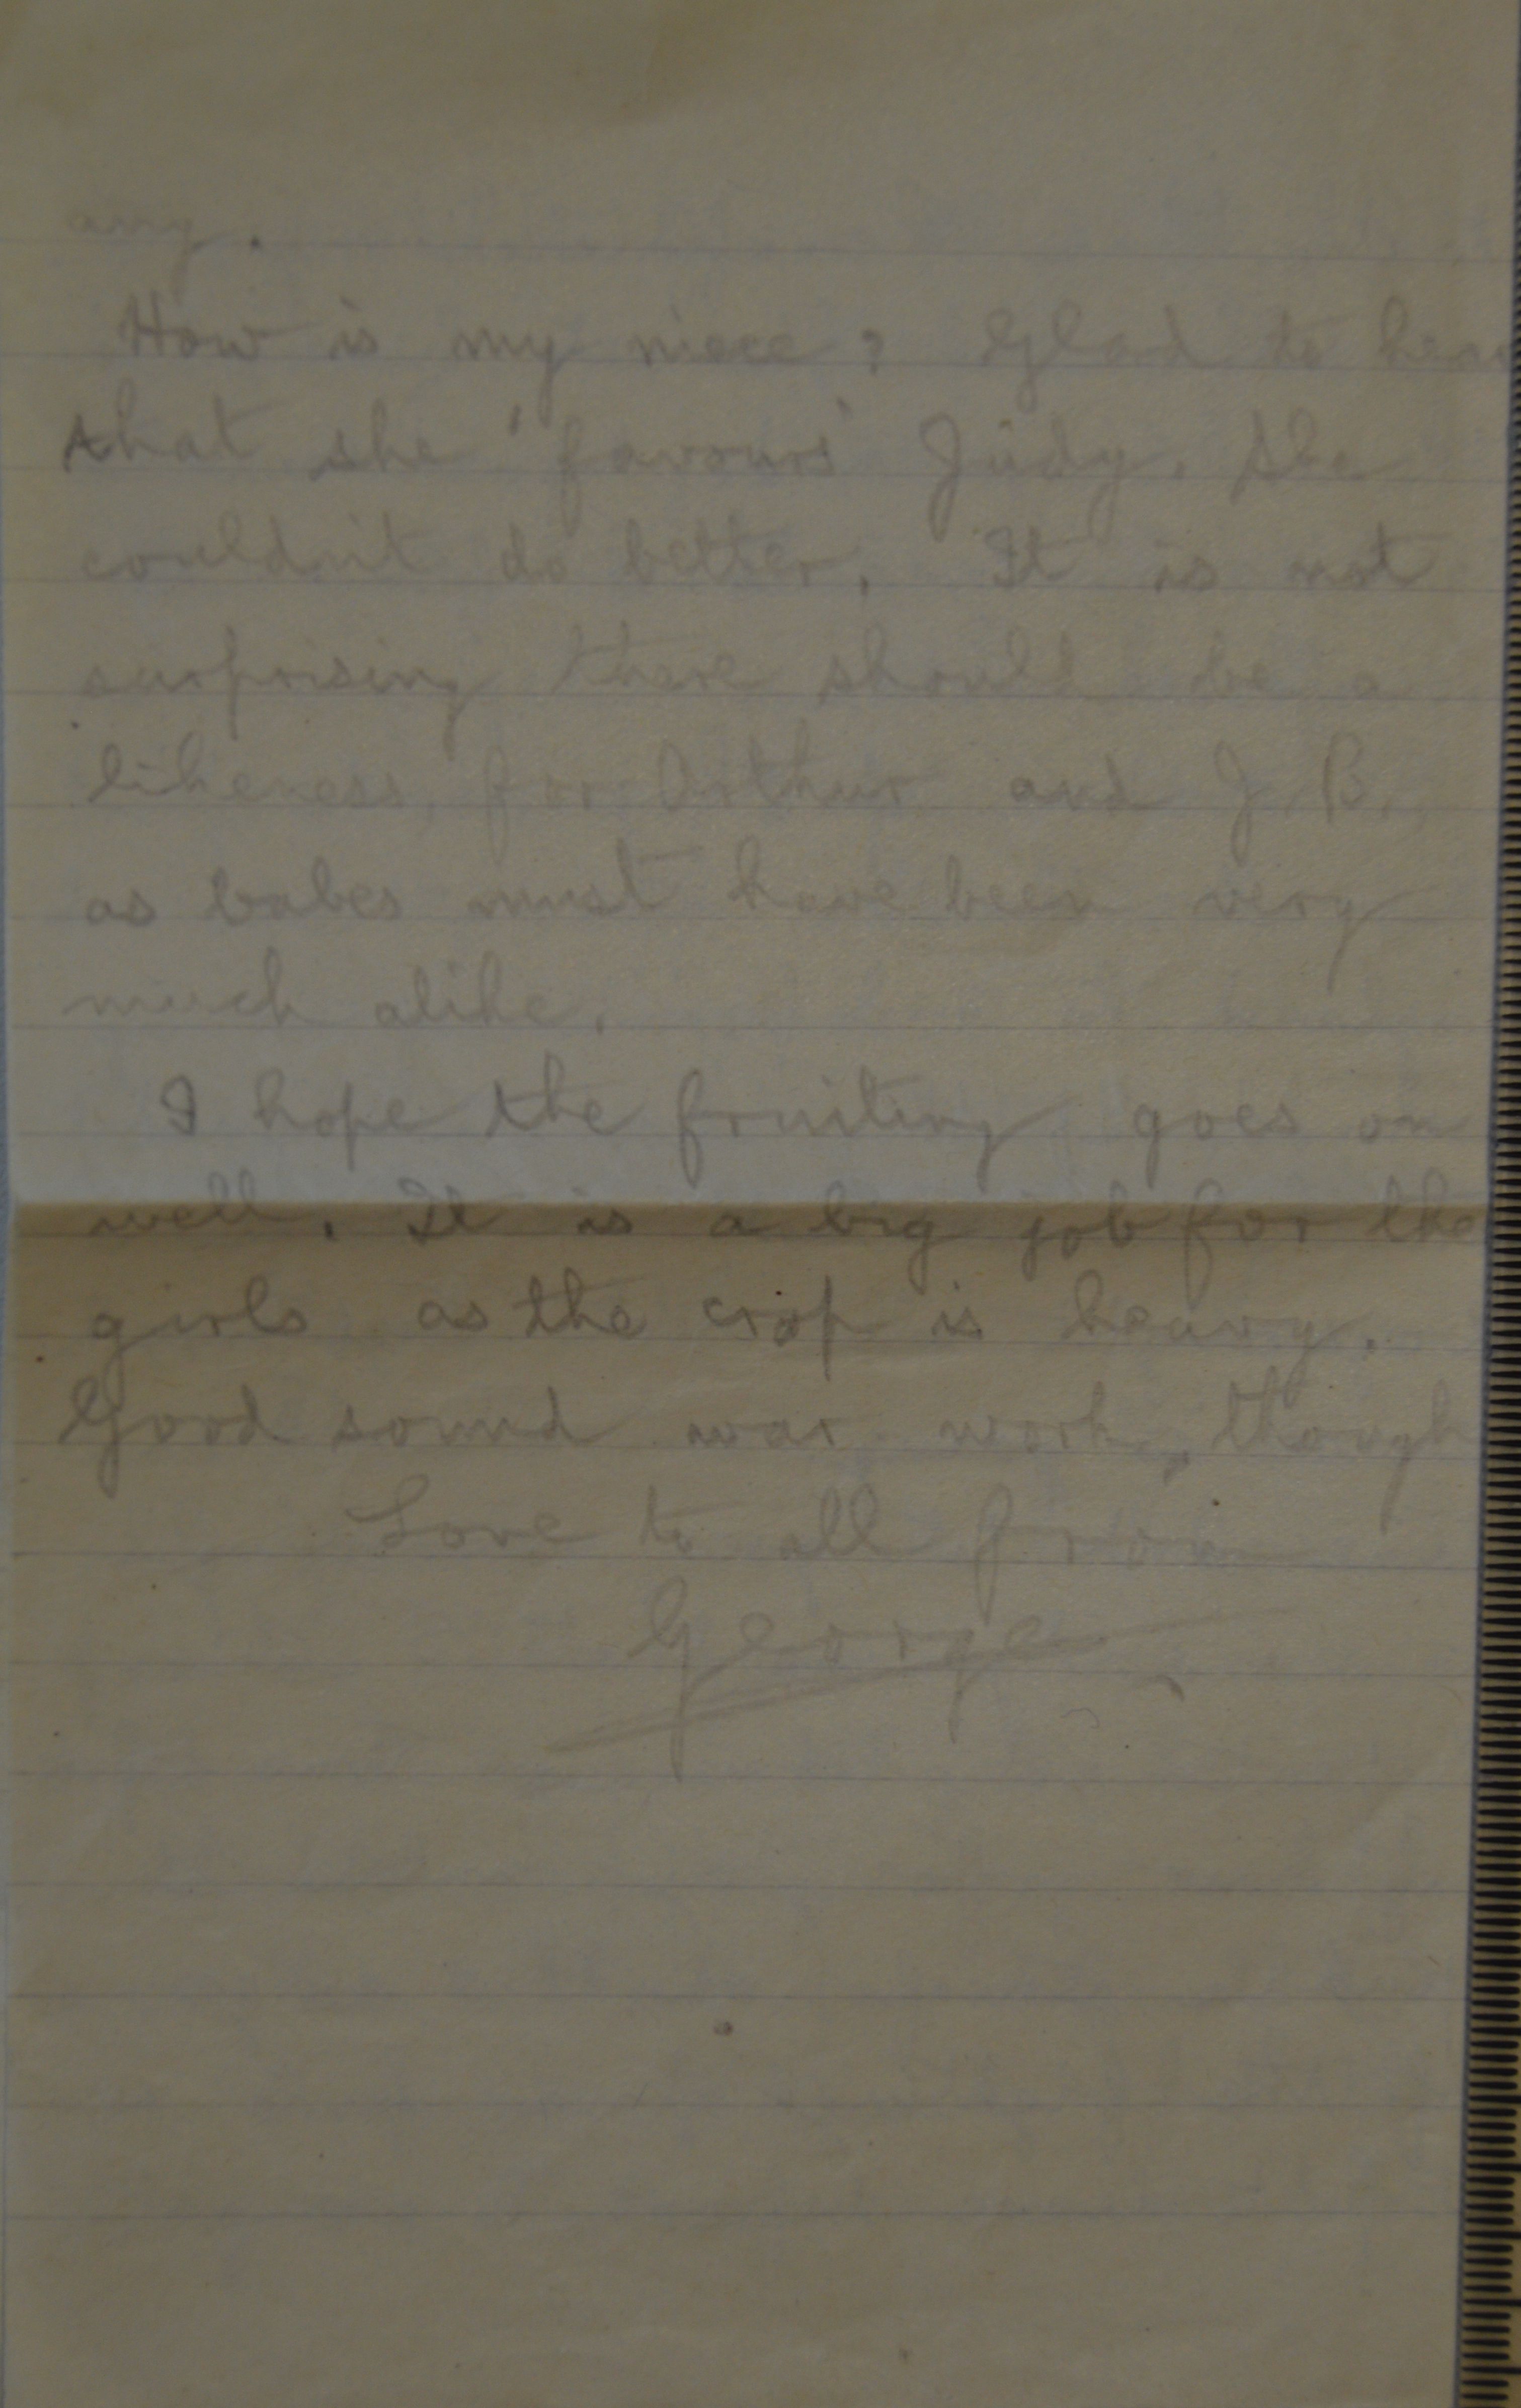 any.
How is my niece? Glad to hear
that she 'favours' Judy. She
couldn't do better. It is not
surprising there should be a
likeness, for Arthur and J. B.
as babes must have been very
much alike.
I hope the fruiting goes on
well. It is a big job for the
girls as the crop is heavy.
Good sound war work, though
Love to all from
George